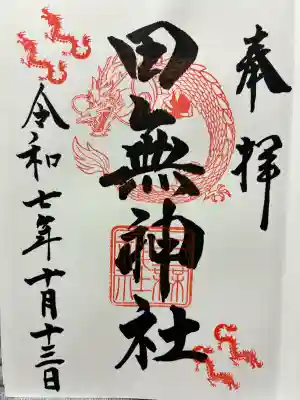 奉拝
田無神社
令和七年十月十三日